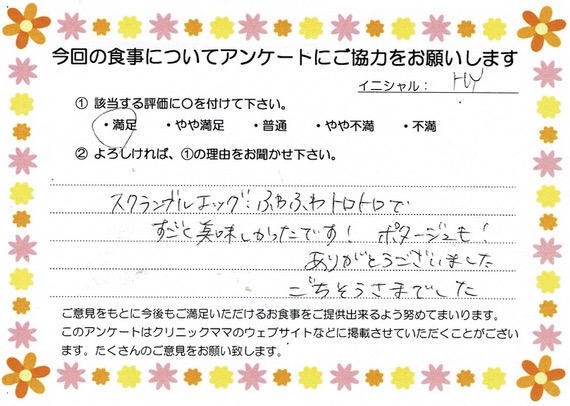 今回の食事についてアンケートにご協力をお願いします
イニシャル： HY
① 該当する評価に〇を付けて下さい。
・満足 ・やや満足 ・普通 ・やや不満 ・不満
② よろしければ、①の理由をお聞かせ下さい。
スクランブルエッグ：ふわふわトロトロで
すごく美味しかったです！ ポタージュも！
ありがとうございました
ごちそうさまでした
ご意見をもとに今後もご満足いただけるお食事をご提供出来るよう努めてまいります。
このアンケートはクリニックママのウェブサイトなどに掲載させていただくことがござい
ます。たくさんのご意見をお願い致します。